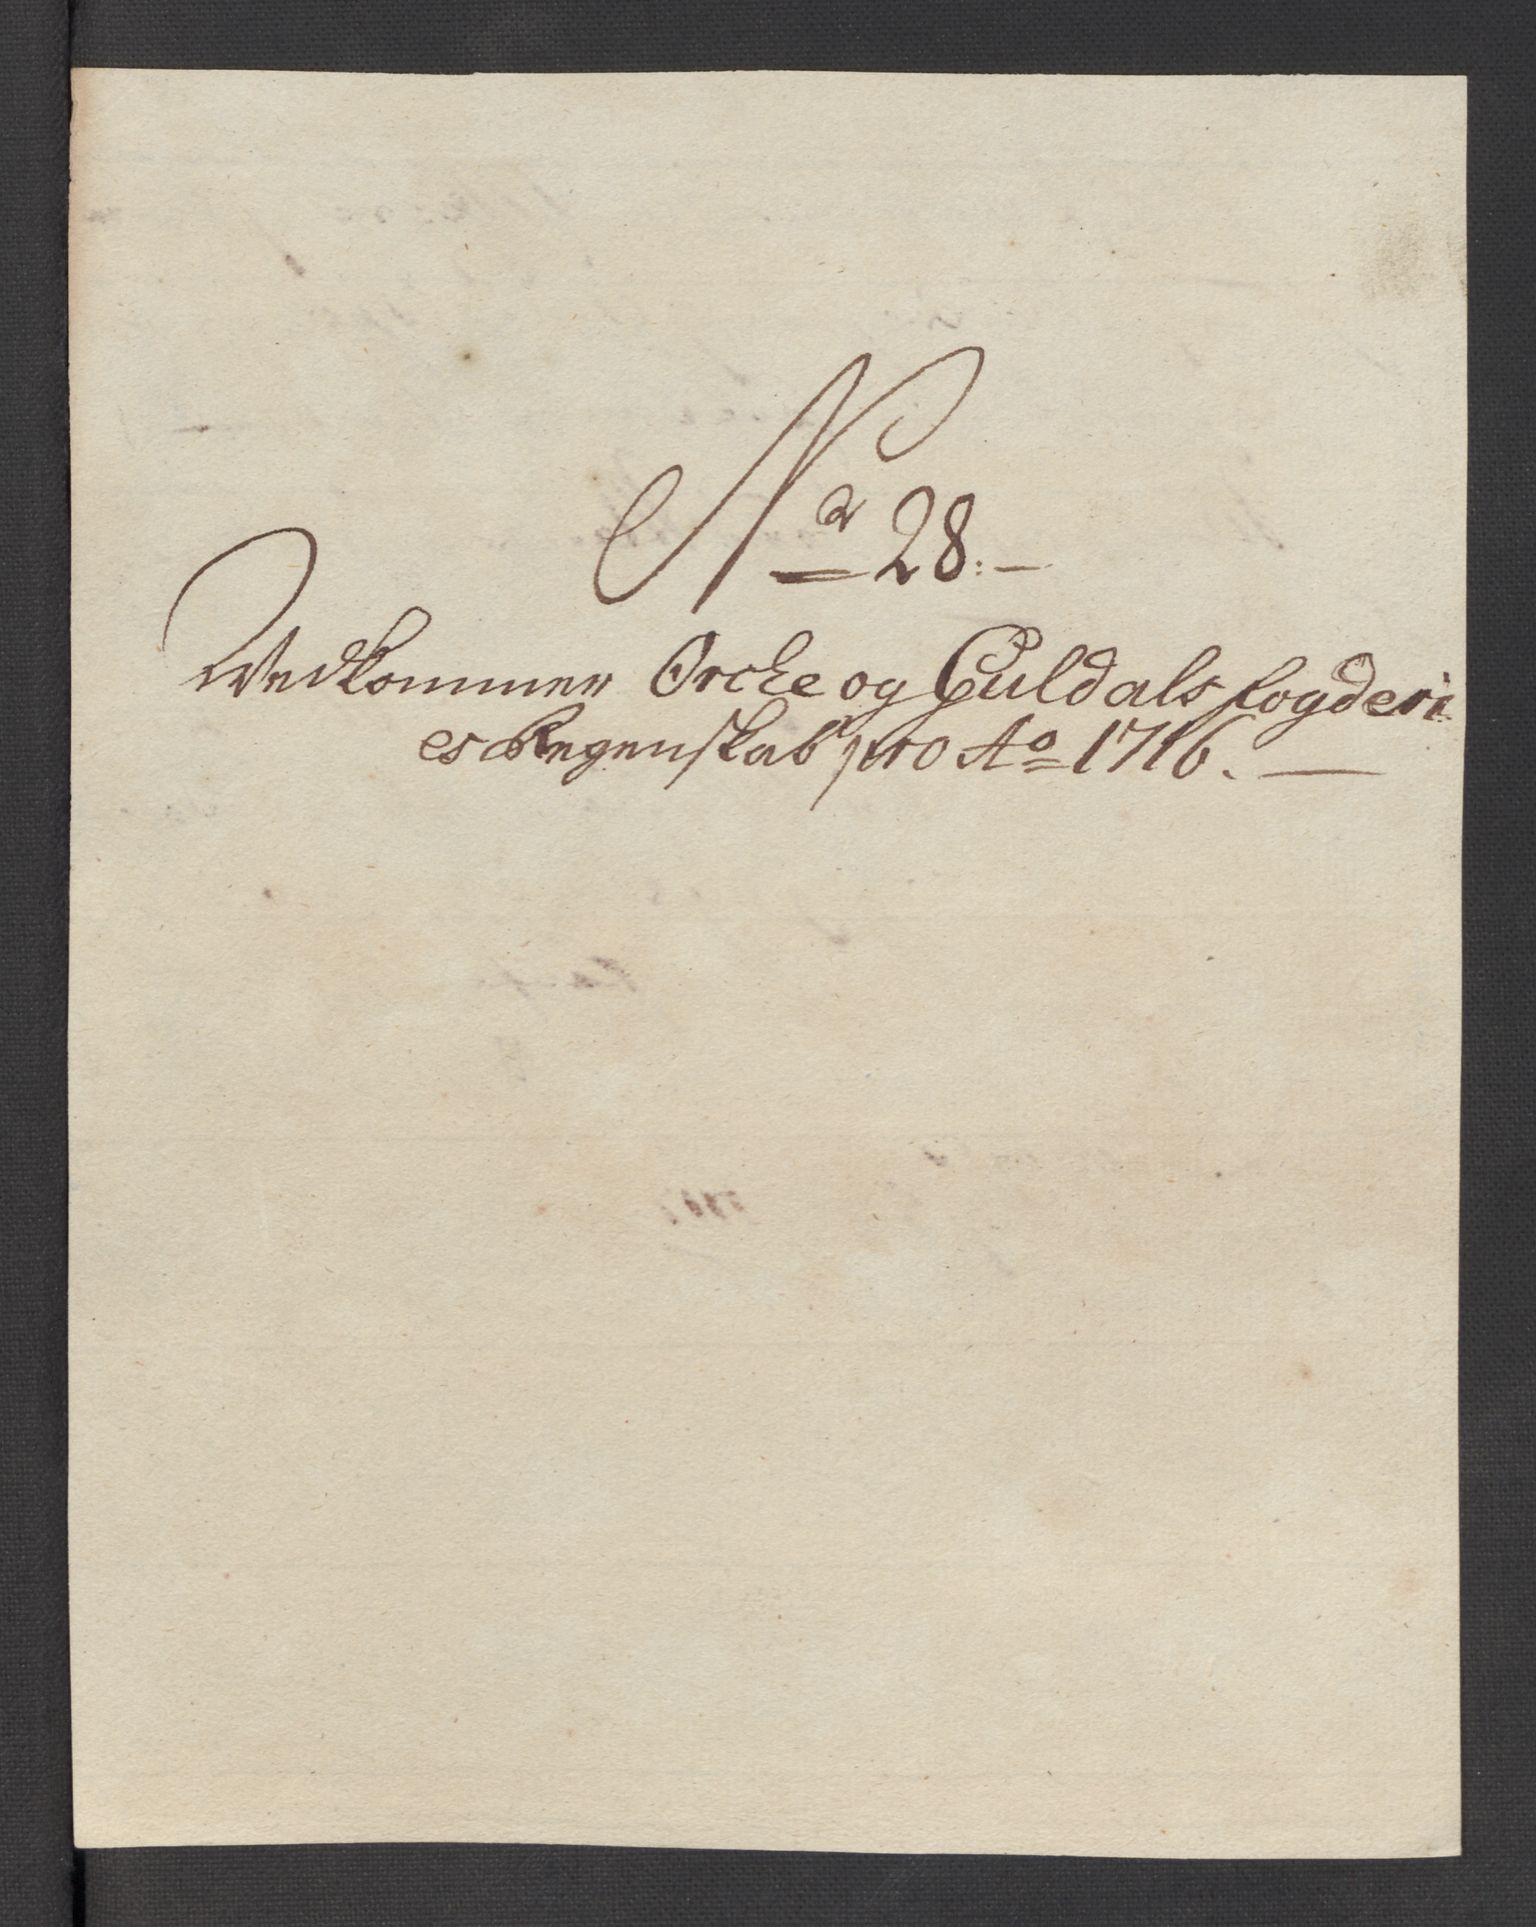 No 28.
Vedkommer Orcke og Guldals fogderi
es Regenskab pro Ao 1716.